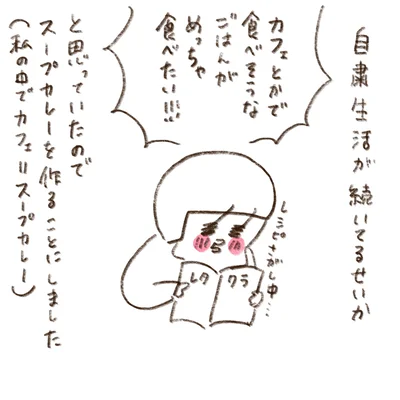 自粛生活が続いてるせいか
カフェとかで
食べそうな
ごはんが
めっちゃ
食べたい!!!!
レシピさがし中…
レタ
クラ
と思っていたので
スープカレーを作ることにしました
(私の中でカフェ=スープカレー)